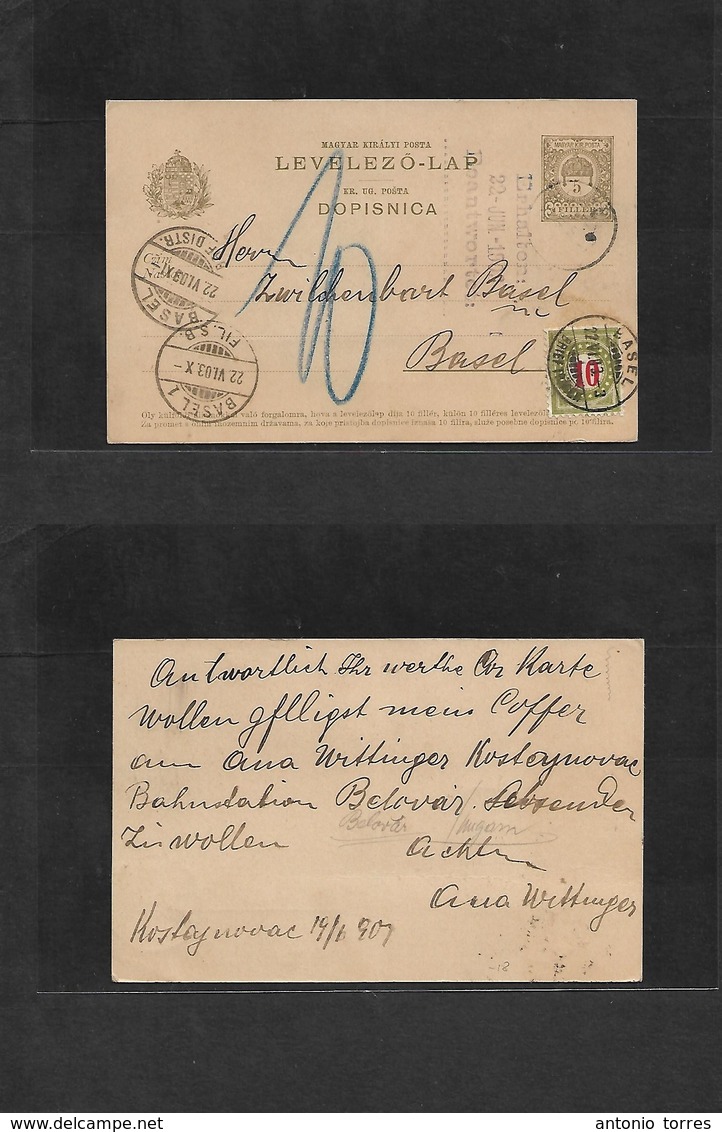 MAGYAR KIRÁLYI POSTA
LEVELEZŐ-LAP
KR. UG. POŠTA
DOPISNICA
MAGYAR KIR. POSTA
5
FILLÉR
Erhalten:
22. JUN. 19
Beantwortet:
10
Herrn
Zwilchenbart Basel
in
Basel
BASEL
22.VI.03.XI
BRF. DISTR.
FIL. S.B.
22.VI.03.X-
BASEL 1
BASEL
10
Oly külföldi való forgalomra, hova a levelezőlap dija 10 fillér, külön 10 filléres levelező
Za promet s onim inozemnim državama, za koje pristojba dopisnice iznaša 10 filira, služe posebne dopisnice po 10 filira.
Antwortlich Ihr werthe Cor Karte
wollen gflligst mein Coffer
am Ana Wittinger Kostajnovac
Bahnstation Belovár Absenden
Zu wollen
Belovár Ungarn
Achten
Ana Wittinger
Kostajnovac 19/6 903
antonio torres